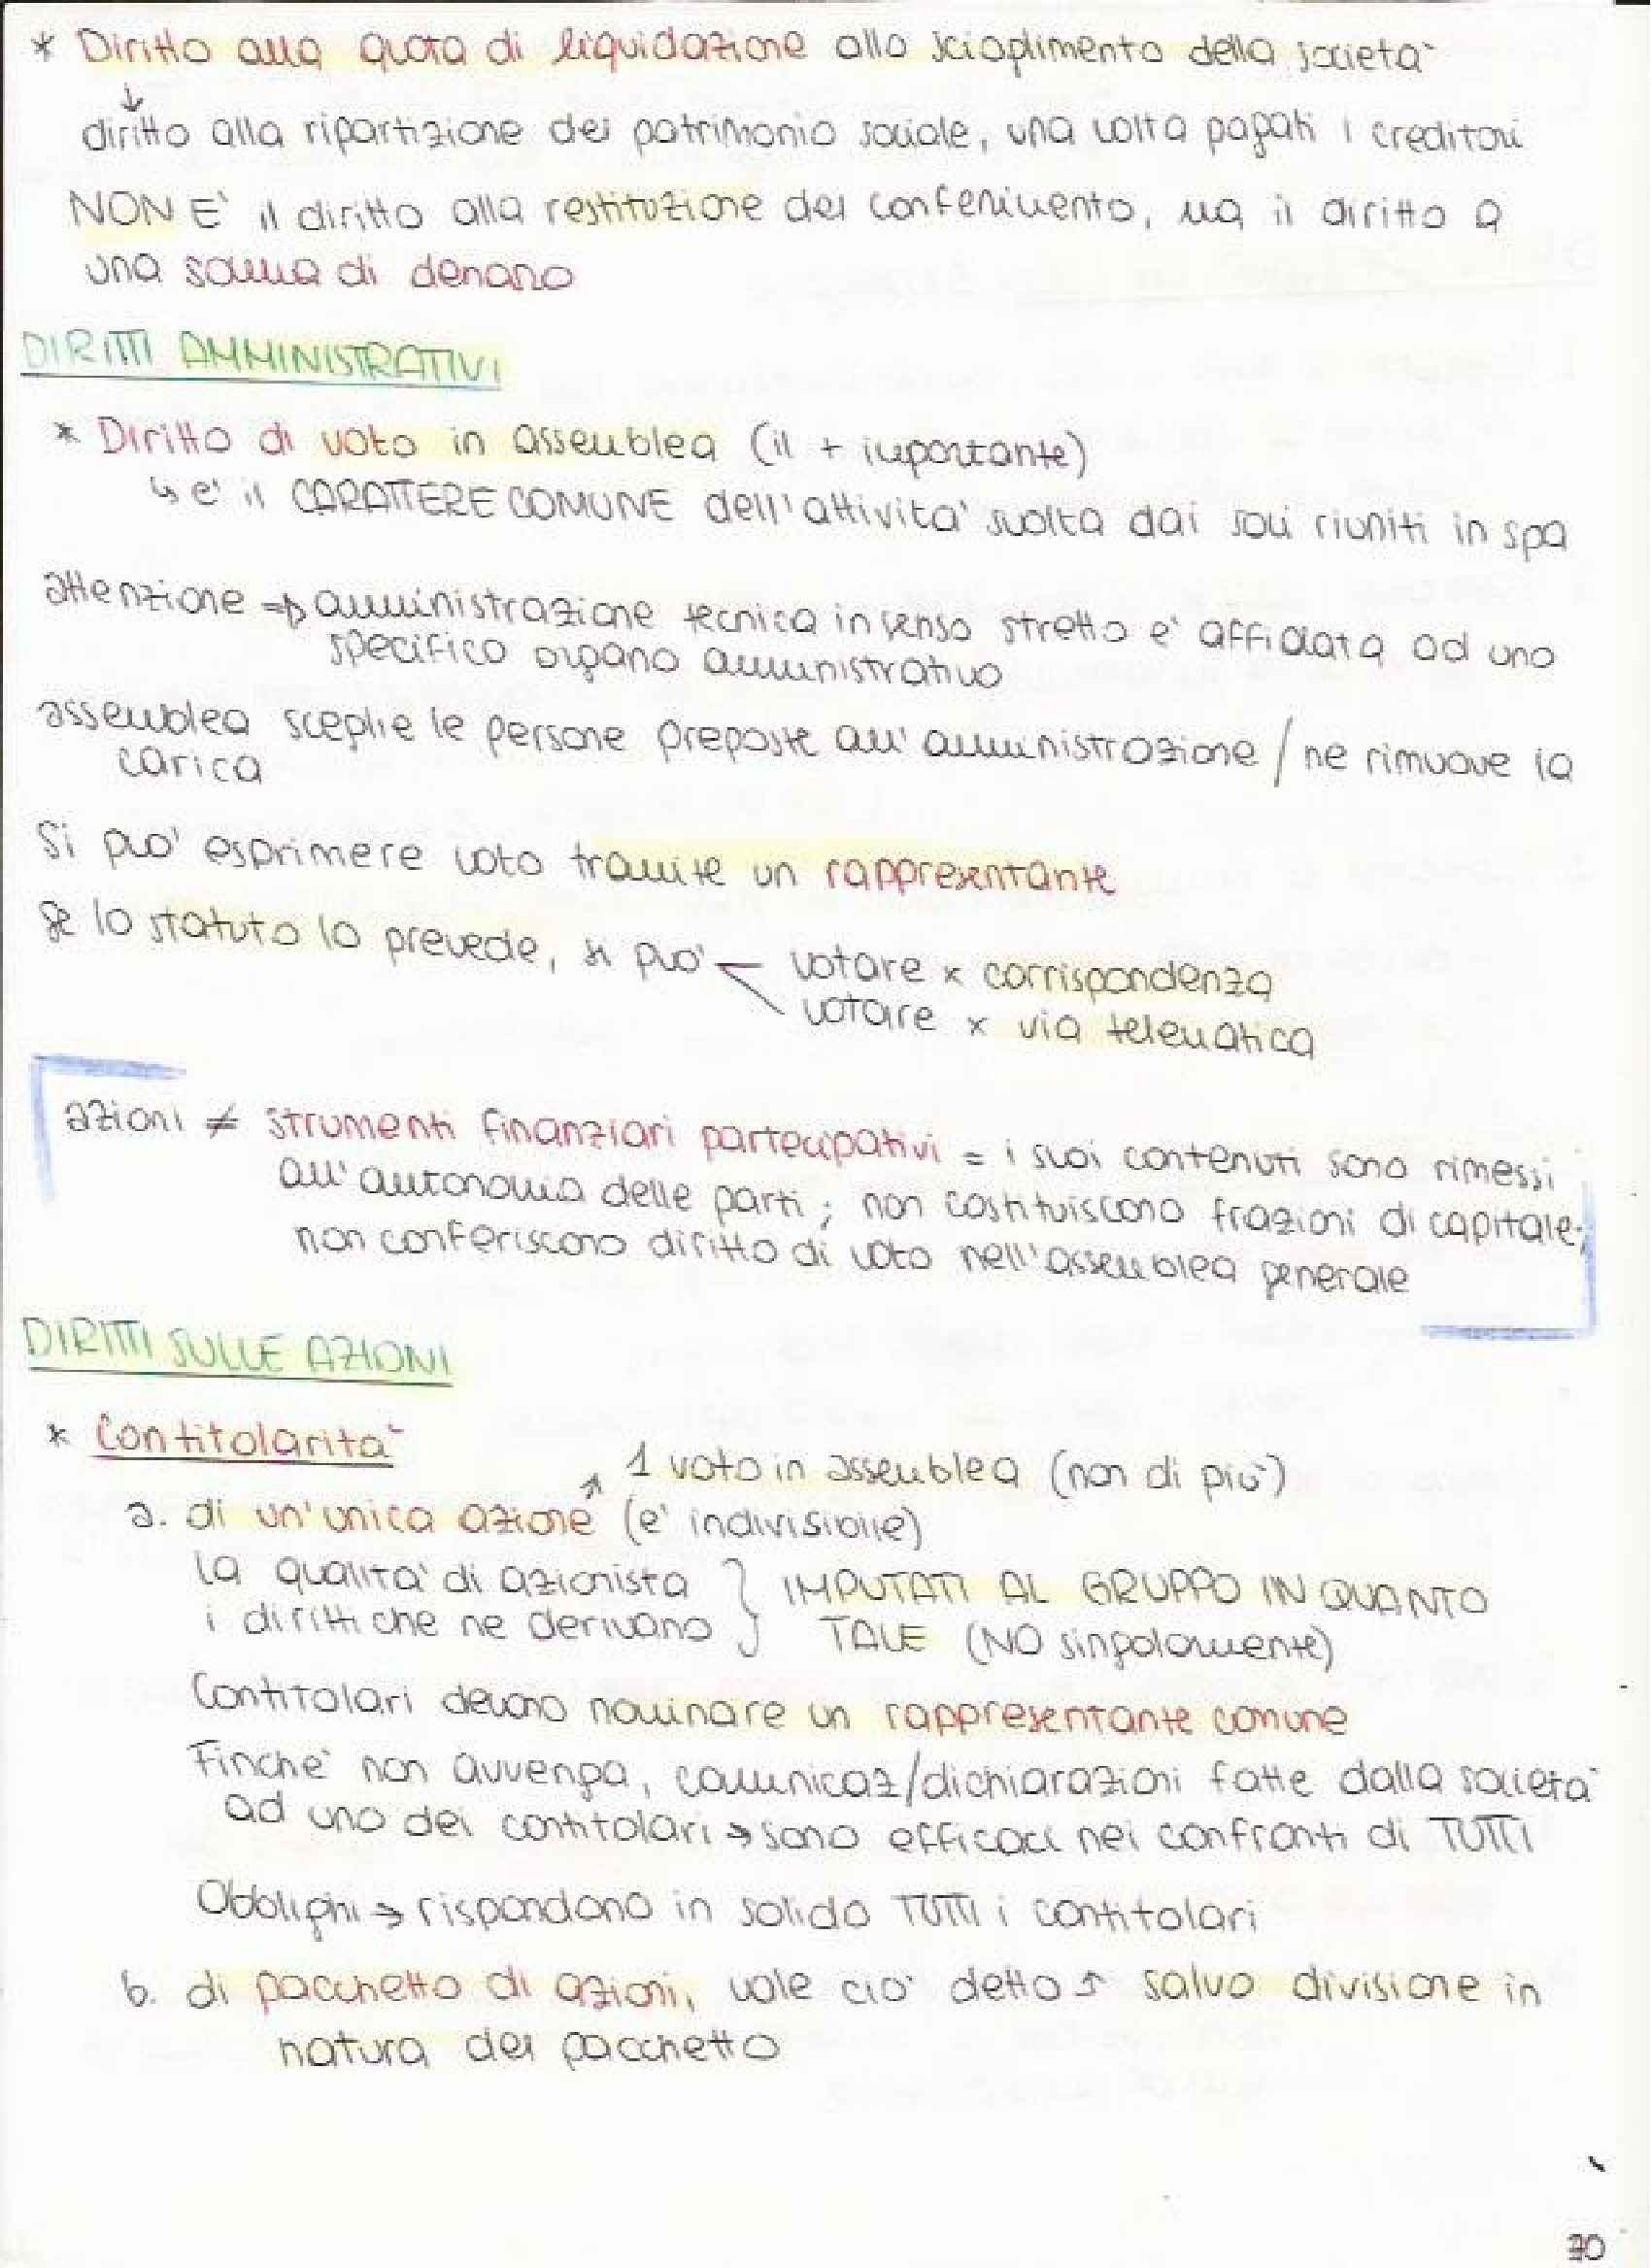 * Diritto alla quota di liquidazione allo scioglimento della società
↓
diritto alla ripartizione del patrimonio sociale, una volta pagati i creditori
NON E' il diritto alla restituzione del conferimento, ma il diritto a
una somma di denaro
DIRITTI AMMINISTRATIVI
* Diritto di voto in assemblea (il + importante)
↳ e' il CARATTERE COMUNE dell'attivita' svolta dai soci riuniti in spa
attenzione ⇒ amministrazione tecnica in senso stretto e' affidata ad uno
specifico organo amministrativo
assemblea sceglie le persone preposte all'amministrazione / ne rimuove la
carica
Si puo' esprimere voto tramite un rappresentante
Se lo statuto lo prevede, si puo' votare x corrispondenza
votare x via telematica
azioni ≠ strumenti finanziari partecipativi = i suoi contenuti sono rimessi
all'autonomia delle parti; non costituiscono frazioni di capitale;
non conferiscono diritto di voto nell'assemblea generale
DIRITTI SULLE AZIONI
* Contitolarità
↗ 1 voto in assemblea (non di più)
a. di un'unica azione (e' indivisibile)
la qualita' di azionista } IMPUTATI AL GRUPPO IN QUANTO
i diritti che ne derivano } TALE (NO singolarmente)
Contitolari devono nominare un rappresentante comune
Finche' non avvenga, comunicaz/dichiarazioni fatte dalla società
ad uno dei contitolari → sono efficaci nei confronti di TUTTI
Obblighi → rispondono in solido TUTTI i contitolari
b. di pacchetto di azioni, vale cio' detto ↑ salvo divisione in
natura del pacchetto
30